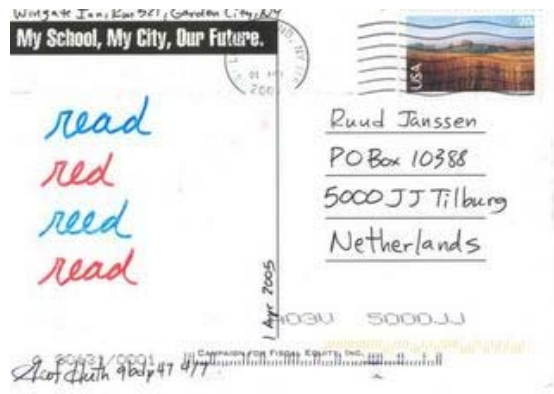 Wingate Inn, Rm 521, Garden City, NY
My School, My City, Our Future.
USA
read
red
reed
read
Ruud Janssen
PO Box 10388
5000 JJ Tilburg
Netherlands
1 Apr 2005
5000JJ
CAMPAIGN FOR FISCAL EQUITY, INC.
Geof Huth